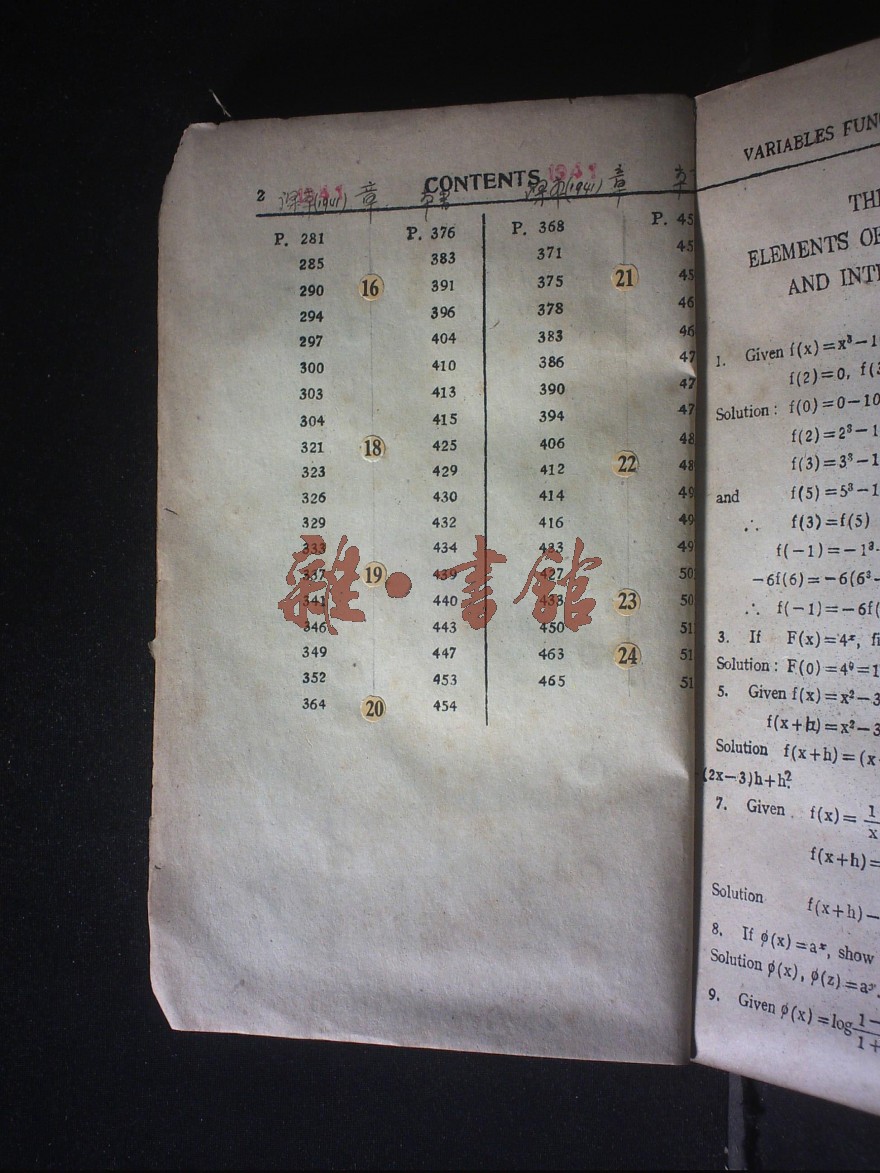 2 CONTENTS
課本(1941) 章 本書 課本(1941) 章 本
P. 281 P. 376 P. 368 P. 45
285 383 371 45
290 16 391 375 21 45
294 396 378 46
297 404 383 46
300 410 386 47
303 413 390 47
304 415 394 47
321 18 425 406 48
323 429 412 22 48
326 430 414 49
329 432 416 49
333 434 423 49
337 19 439 427 50
341 440 433 23 50
346 443 450 51
349 447 463 24 51
352 453 465 51
364 20 454
雜·書館
VARIABLES FUN
TH
ELEMENTS OF
AND INT
1. Given f(x)=x³−1
f(2)=0, f(3
Solution: f(0)=0−10
f(2)=2³−1
f(3)=3³−1
and f(5)=5³−1
∴ f(3)=f(5)
f(−1)=−1³
−6f(6)=−6(6³−
∴ f(−1)=−6f(
3. If F(x)=4ˣ, fi
Solution: F(0)=4⁰=1
5. Given f(x)=x²−3
f(x+h)=x²−3
Solution f(x+h)=(x
(2x−3)h+h².
7. Given f(x)= 1/x
f(x+h)=
Solution f(x+h)−
8. If ϕ(x)=aˣ, show
Solution ϕ(x), ϕ(z)=aˣ
9. Given ϕ(x)=log 1−/1+